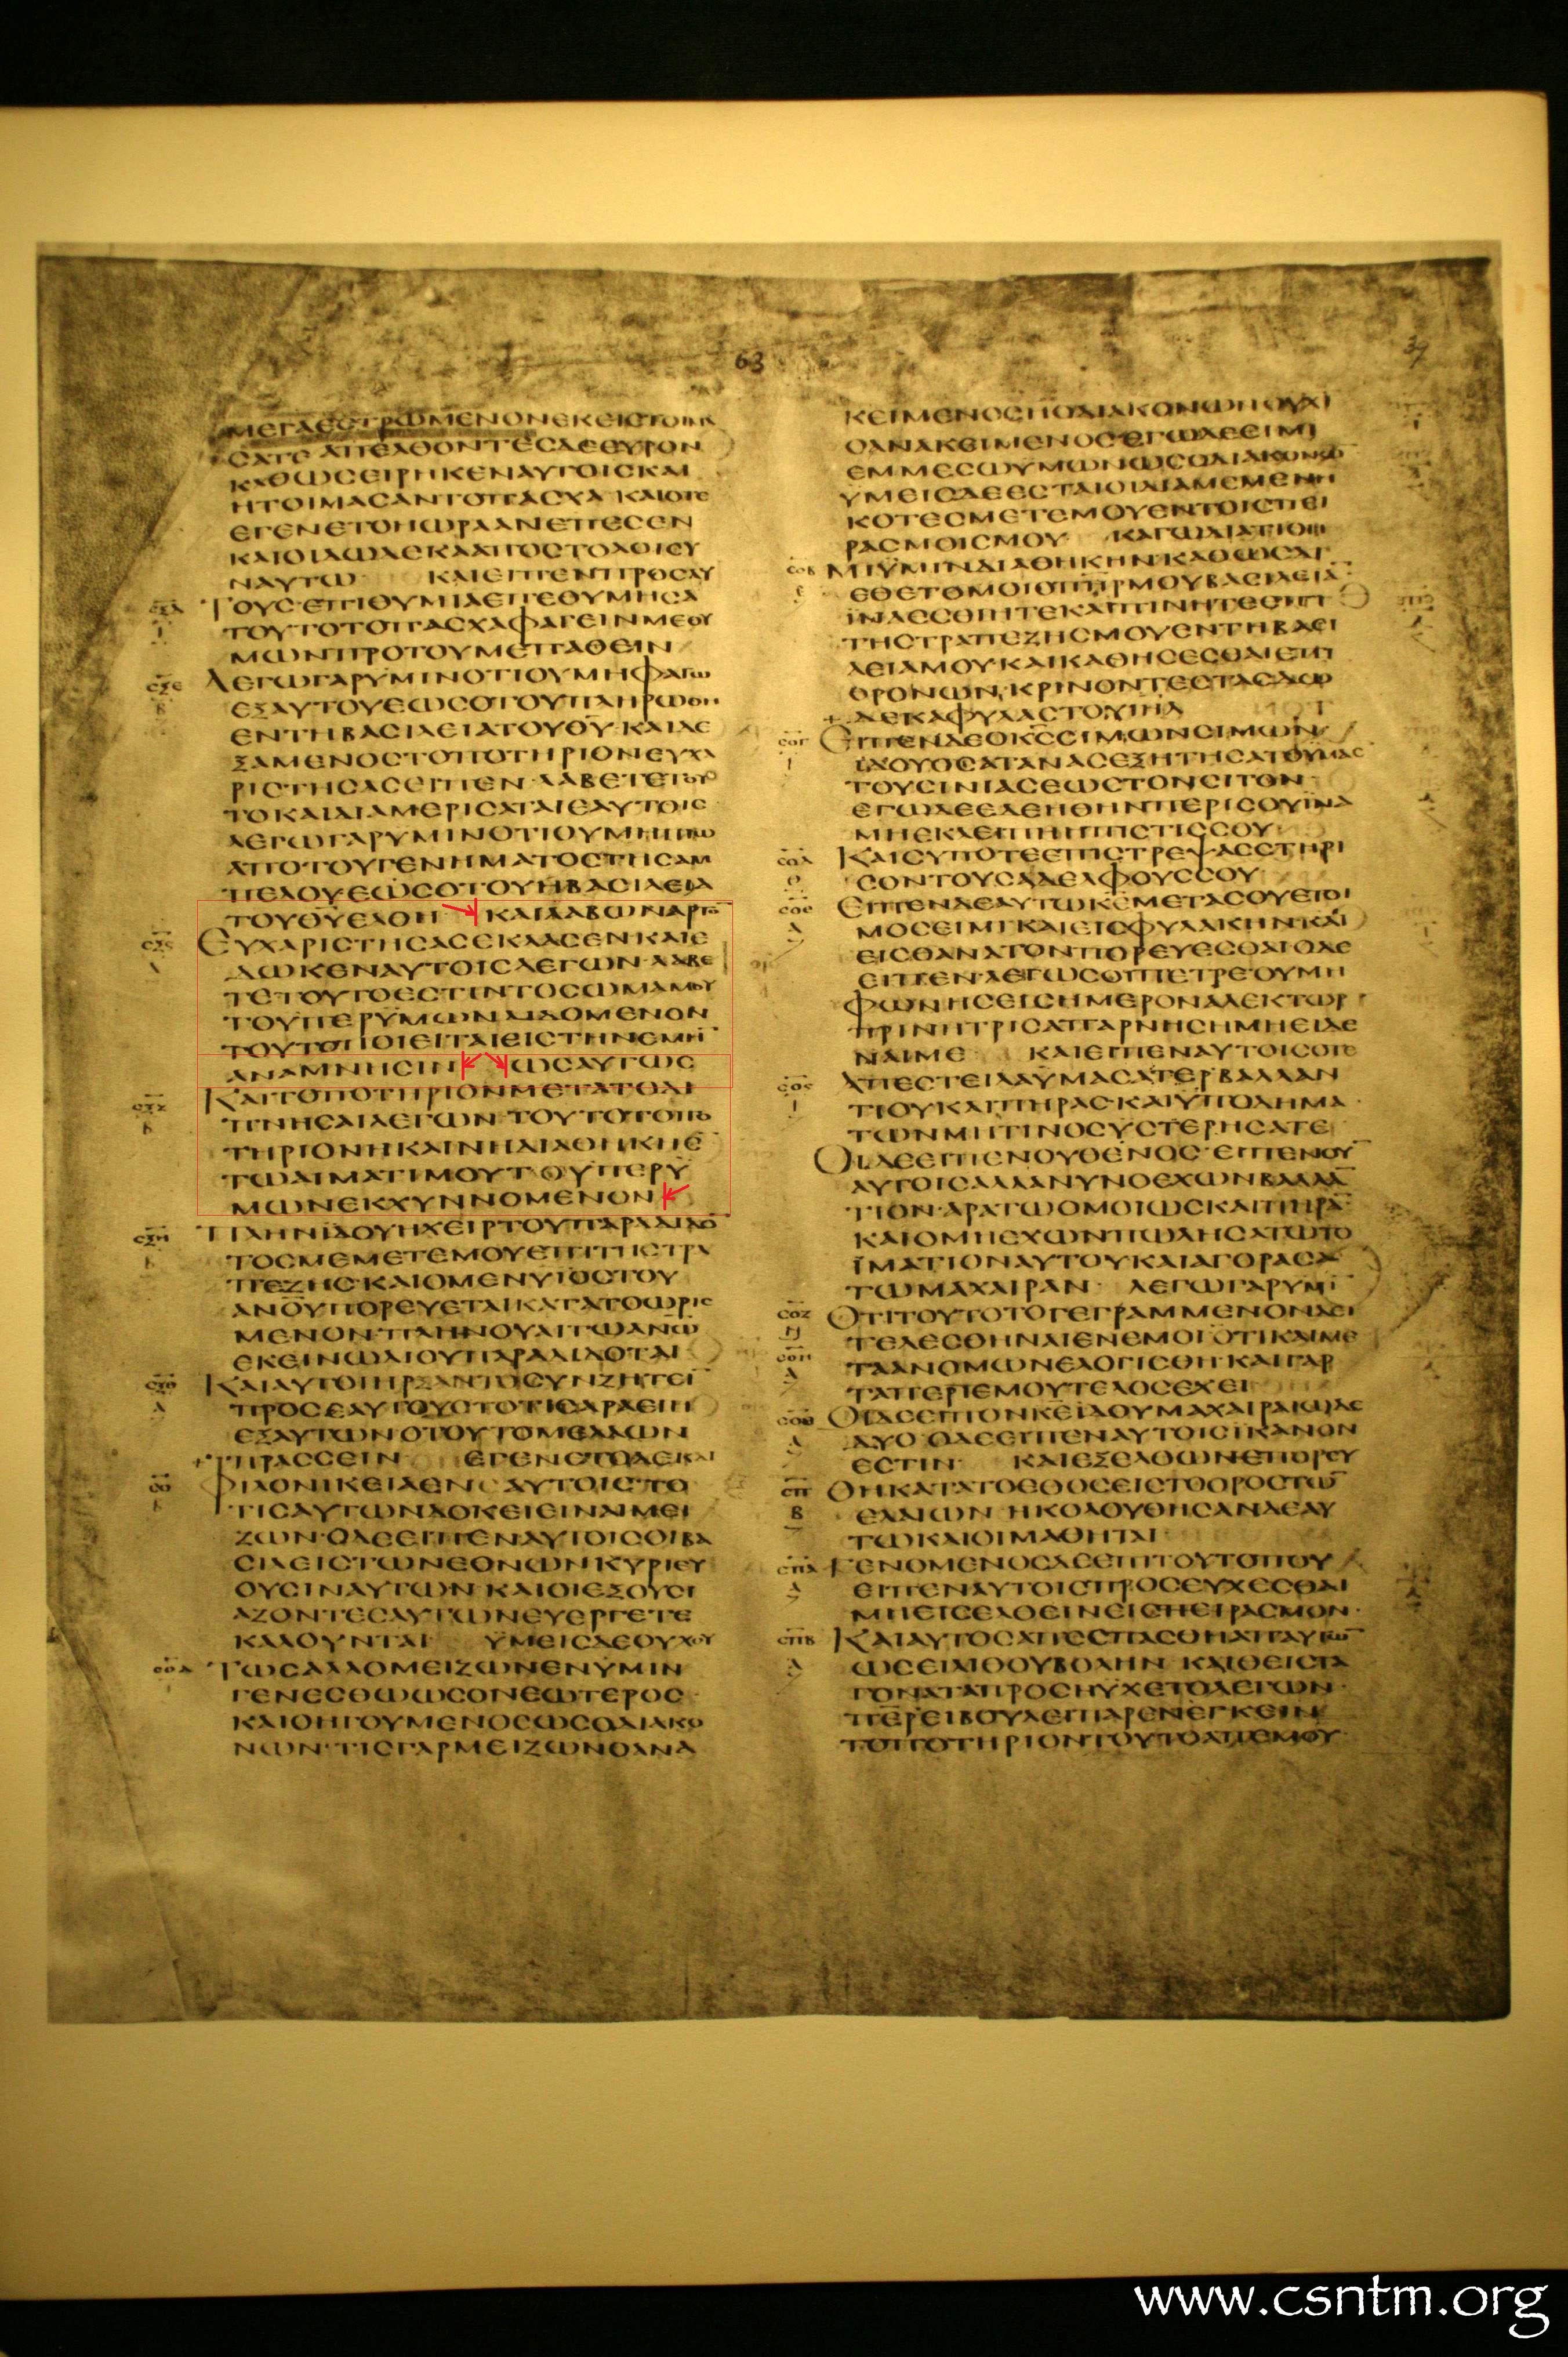 63
39
ΜΕΓΑΕϹΤΡΩΜΕΝΟΝΕΚΕΙΕΤΟΙΜΑ
ϹΑΤΕ ΑΠΕΛΘΟΝΤΕϹΔΕΕΥΡΟΝ
ΚΑΘΩϹΕΙΡΗΚΕΝΑΥΤΟΙϹΚΑΙ
ΗΤΟΙΜΑϹΑΝΤΟΠΑϹΧΑ ΚΑΙΟΤΕ
ΕΓΕΝΕΤΟΗΩΡΑΑΝΕΠΕϹΕΝ
ΚΑΙΟΙΔΩΔΕΚΑΑΠΟϹΤΟΛΟΙϹΥ
ΝΑΥΤΩ ΚΑΙΕΙΠΕΝΠΡΟϹΑΥ
ΤΟΥϹ·ΕΠΙΘΥΜΙΑΕΠΕΘΥΜΗϹΑ
ΤΟΥΤΟΤΟΠΑϹΧΑΦΑΓΕΙΝΜΕΘΥ
ΜΩΝΠΡΟΤΟΥΜΕΠΑΘΕΙΝ
ΛΕΓΩΓΑΡΥΜΙΝΟΤΙΟΥΜΗΦΑΓΩ
ΕΞΑΥΤΟΥΕΩϹΟΤΟΥΠΛΗΡΩΘΗ
ΕΝΤΗΒΑϹΙΛΕΙΑΤΟΥΘ̅Υ̅·ΚΑΙΔΕ
ΞΑΜΕΝΟϹΤΟΠΟΤΗΡΙΟΝΕΥΧΑ
ΡΙϹΤΗϹΑϹΕΙΠΕΝ·ΛΑΒΕΤΕΤΟΥ
ΤΟΚΑΙΔΙΑΜΕΡΙϹΑΤΑΙΕΑΥΤΟΙϹ
ΛΕΓΩΓΑΡΥΜΙΝΟΤΙΟΥΜΗΠΙΩ
ΑΠΟΤΟΥΓΕΝΗΜΑΤΟϹΤΗϹΑΜ
ΠΕΛΟΥΕΩϹΟΤΟΥΗΒΑϹΙΛΕΙΑ
ΤΟΥΘ̅Υ̅ΕΛΘΗ ΚΑΙΛΑΒΩΝΑΡΤΟ̅
ΕΥΧΑΡΙϹΤΗϹΑϹΕΚΛΑϹΕΝΚΑΙΕ
ΔΩΚΕΝΑΥΤΟΙϹΛΕΓΩΝ·ΛΑΒΕ
ΤΕΤΟΥΤΟΕϹΤΙΝΤΟϹΩΜΑΜΟΥ
ΤΟΥΠΕΡΥΜΩΝΔΙΔΟΜΕΝΟΝ
ΤΟΥΤΟΠΟΙΕΙΤΑΙΕΙϹΤΗΝΕΜΗ̅
ΑΝΑΜΝΗϹΙΝ ΩϹΑΥΤΩϹ
ΚΑΙΤΟΠΟΤΗΡΙΟΝΜΕΤΑΤΟΔΙ
ΠΝΗϹΑΙΛΕΓΩΝ·ΤΟΥΤΟΤΟΠΟ
ΤΗΡΙΟΝΗΚΑΙΝΗΔΙΑΘΗΚΗΕ̅
ΤΩΑΙΜΑΤΙΜΟΥΤΟΥΠΕΡΥ
ΜΩΝΕΚΧΥΝΝΟΜΕΝΟΝ
ΠΛΗΝΙΔΟΥΗΧΕΙΡΤΟΥΠΑΡΑΔΙΔΟ̅
ΤΟϹΜΕΜΕΤΕΜΟΥΕΠΙΤΗϹΤΡΑ
ΠΕΖΗϹ·ΚΑΙΟΜΕΝΥΙΟϹΤΟΥ
Α̅Ν̅Ο̅Υ̅ΠΟΡΕΥΕΤΑΙΚΑΤΑΤΟΩΡΙϹ
ΜΕΝΟΝ·ΠΛΗΝΟΥΑΙΤΩΑ̅Ν̅Ω̅
ΕΚΕΙΝΩΔΙΟΥΠΑΡΑΔΙΔΟΤΑΙ
ΚΑΙΑΥΤΟΙΗΡΞΑΝΤΟϹΥΝΖΗΤΕΙ̅
ΠΡΟϹΕΑΥΤΟΥϹΤΟΤΙϹΑΡΑΕΙΗ
ΕΞΑΥΤΩΝΟΤΟΥΤΟΜΕΛΛΩΝ
ΠΡΑϹϹΕΙΝ ΕΓΕΝΕΤΟΔΕΚΑΙ
ΦΙΛΟΝΙΚΕΙΑΕΝ ΑΥΤΟΙϹΤΟ
ΤΙϹΑΥΤΩΝΔΟΚΕΙΕΙΝΑΙΜΕΙ
ΖΩΝ·ΟΔΕΕΙΠΕΝΑΥΤΟΙϹΟΙΒΑ
ϹΙΛΕΙϹΤΩΝΕΘΝΩΝΚΥΡΙΕΥ
ΟΥϹΙΝΑΥΤΩΝ·ΚΑΙΟΙΕΞΟΥϹΙ
ΑΖΟΝΤΕϹΑΥΤΩΝΕΥΕΡΓΕΤΕ
ΚΑΛΟΥΝΤΑΙ ΥΜΕΙϹΔΕΟΥΧΟΥ
ΤΩϹΑΛΛΟΜΕΙΖΩΝΕΝΥΜΙΝ
ΓΕΝΕϹΘΩΩϹΟΝΕΩΤΕΡΟϹ
ΚΑΙΟΗΓΟΥΜΕΝΟϹΩϹΟΔΙΑΚΟ
ΝΩΝ·ΤΙϹΓΑΡΜΕΙΖΩΝΟΑΝΑ
ΚΕΙΜΕΝΟϹΗΟΔΙΑΚΟΝΩΝΟΥΧΙ
ΟΑΝΑΚΕΙΜΕΝΟϹΕΓΩΔΕΕΙΜΙ
ΕΜΜΕϹΩΥΜΩΝΩϹΟΔΙΑΚΟΝΩ̅
ΥΜΕΙϹΔΕΕϹΤΑΙΟΙΔΙΑΜΕΜΕΝΗ
ΚΟΤΕϹΜΕΤΕΜΟΥΕΝΤΟΙϹΠΕΙ
ΡΑϹΜΟΙϹΜΟΥ ΚΑΓΩΔΙΑΤΙΘΗ
ΜΙΫΜΙΝΔΙΑΘΗΚΗΝΚΑΘΩϹΔΙ
ΕΘΕΤΟΜΟΙΟΠ̅Η̅Ρ̅ΜΟΥΒΑϹΙΛΕΙΑ̅
ΪΝΑΕϹΘΗΤΕΚΑΙΠΙΝΗΤΕΕΠΙ
ΤΗϹΤΡΑΠΕΖΗϹΜΟΥΕΝΤΗΒΑϹΙ
ΛΕΙΑΜΟΥΚΑΙΚΑΘΗϹΕϹΘΑΙΕΠΙ
ΘΡΟΝΩΝ,ΚΡΙΝΟΝΤΕϹΤΑϹΔΩ
ΔΕΚΑΦΥΛΑϹΤΟΥΙ̅Η̅Λ̅
ΕΙΠΕΝΔΕΟΚ̅Ϲ̅ϹΙΜΩΝϹΙΜΩΝ
ΙΔΟΥΟϹΑΤΑΝΑϹΕΞΗΤΗϹΑΤΟΫΜΑϹ
ΤΟΥϹΙΝΙΑϹΕΩϹΤΟΝϹΙΤΟΝ
ΕΓΩΔΕΕΔΕΗΘΗΝΠΕΡΙϹΟΥΪΝΑ
ΜΗΕΚΛΕΙΠΗΗΠΙϹΤΙϹϹΟΥ
ΚΑΙϹΥΠΟΤΕΕΠΙϹΤΡΕΨΑϹϹΤΗΡΙ
ϹΟΝΤΟΥϹΑΔΕΛΦΟΥϹϹΟΥ
ΕΙΠΕΝΔΕΑΥΤΩΚ̅Ε̅ΜΕΤΑϹΟΥΕΤΟΙ
ΜΟϹΕΙΜΙΚΑΙΕΙϹΦΥΛΑΚΗΝΚΑΙ
ΕΙϹΘΑΝΑΤΟΝΠΟΡΕΥΕϹΘΑΙΟΔΕ
ΕΙΠΕΝ·ΛΕΓΩϹΟΙΠΕΤΡΕΟΥΜΗ
ΦΩΝΗϹΕΙϹΗΜΕΡΟΝΑΛΕΚΤΩΡ
ΠΡΙΝΗΤΡΙϹΑΠΑΡΝΗϹΗΜΗΕΙΔΕ
ΝΑΙΜΕ ΚΑΙΕΙΠΕΝΑΥΤΟΙϹΟΤΕ
ΑΠΕϹΤΕΙΛΑΫΜΑϹΑΤΕΡΒΑΛΛΑΝ
ΤΙΟΥΚΑΙΠΗΡΑϹ·ΚΑΙΥΠΟΔΗΜΑ
ΤΩΝΜΗΤΙΝΟϹΥϹΤΕΡΗϹΑΤΕ
ΟΙΔΕΕΙΠΕΝΟΥΘΕΝΟϹ·ΕΙΠΕΝΟΥ̅
ΑΥΤΟΙϹΑΛΛΑΝΥΝΟΕΧΩΝΒΑΛΛΑ̅
ΤΙΟΝ·ΑΡΑΤΩΟΜΟΙΩϹΚΑΙΠΗΡΑ̅
ΚΑΙΟΜΗΕΧΩΝΠΩΛΗϹΑΤΩΤΟ
ΪΜΑΤΙΟΝΑΥΤΟΥΚΑΙΑΓΟΡΑϹΑ
ΤΩΜΑΧΑΙΡΑΝ· ΛΕΓΩΓΑΡΥΜΙ̅
ΟΤΙΤΟΥΤΟΤΟΓΕΓΡΑΜΜΕΝΟΝΔΕΙ
ΤΕΛΕϹΘΗΝΑΙΕΝΕΜΟΙΟΤΙΚΑΙΜΕ
ΤΑΑΝΟΜΩΝΕΛΟΓΙϹΘΗ·ΚΑΙΓΑΡ
ΤΑΠΕΡΙΕΜΟΥΤΕΛΟϹΕΧΕΙ
ΟΙΔΕΕΙΠΟΝΚ̅Ε̅ΙΔΟΥΜΑΧΑΙΡΑΙΩΔΕ
ΔΥΟ·ΟΔΕΕΙΠΕΝΑΥΤΟΙϹΪΚΑΝΟΝ
ΕϹΤΙΝ ΚΑΙΕΞΕΛΘΩΝΕΠΟΡΕΥ
ΘΗΚΑΤΑΤΟΕΘΟϹΕΙϹΤΟΟΡΟϹΤΩ̅
ΕΛΑΙΩΝ·ΗΚΟΛΟΥΘΗϹΑΝΔΕΑΥ
ΤΩΚΑΙΟΙΜΑΘΗΤΑΙ
ΓΕΝΟΜΕΝΟϹΔΕΕΠΙΤΟΥΤΟΠΟΥ
ΕΙΠΕΝΑΥΤΟΙϹΠΡΟϹΕΥΧΕϹΘΑΙ
ΜΗΕΙϹΕΛΘΕΙΝΕΙϹΠΕΙΡΑϹΜΟΝ·
ΚΑΙΑΥΤΟϹΑΠΕϹΠΑϹΘΗΑΠΑΥΤΩ̅
ΩϹΕΙΛΙΘΟΥΒΟΛΗΝ·ΚΑΙΘΕΙϹΤΑ
ΓΟΝΑΤΑΠΡΟϹΗΥΧΕΤΟΛΕΓΩΝ·
Π̅Ε̅Ρ̅ΕΙΒΟΥΛΕΙΠΑΡΕΝΕΓΚΕΙΝ
ΤΟΠΟΤΗΡΙΟΝΤΟΥΤΟΑΠΕΜΟΥ
www.csntm.org